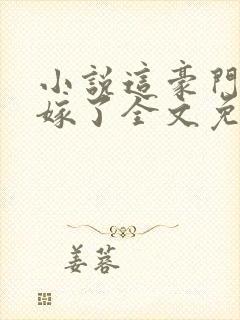 小說這豪門
嫁了全文免
姜蓉